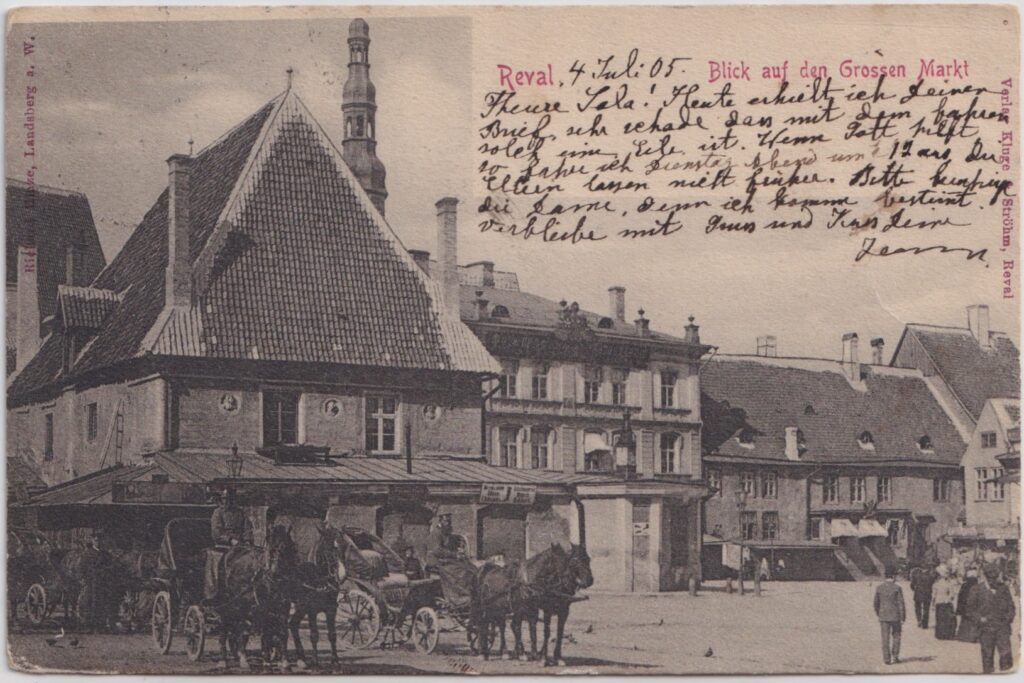 Reval, 4 Juli 05. Blick auf den Grossen Markt
Theure Lola! Heute erhielt ich Deinen
Brief, sehr schade dass mit dem fahren
solch eine Eile ist. Wenn Gott hilft
so fahre ich Dienstag Abend um 12 aus, die
Eltern lassen nicht früher. Bitte
die Dame, denn ich komme bestimmt.
Verbleibe mit Gruss und Kuss Deine
Landsberg a. W.
Verlag Kluge Ströhm, Reval